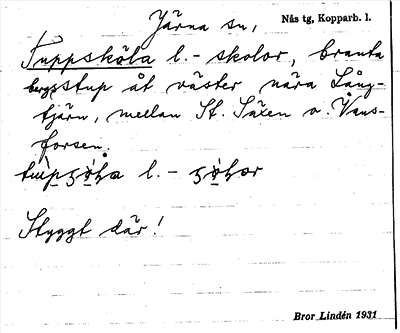 Järna sn, Nås tg, Kopparb. l.
Tuppsköla l. - skolor, branta
bergsstup åt väster nära Lång-
tjärn, mellan St. Säxen o. Vans-
forsen.
l. -
Styggt där!
Bror Lindén 1931